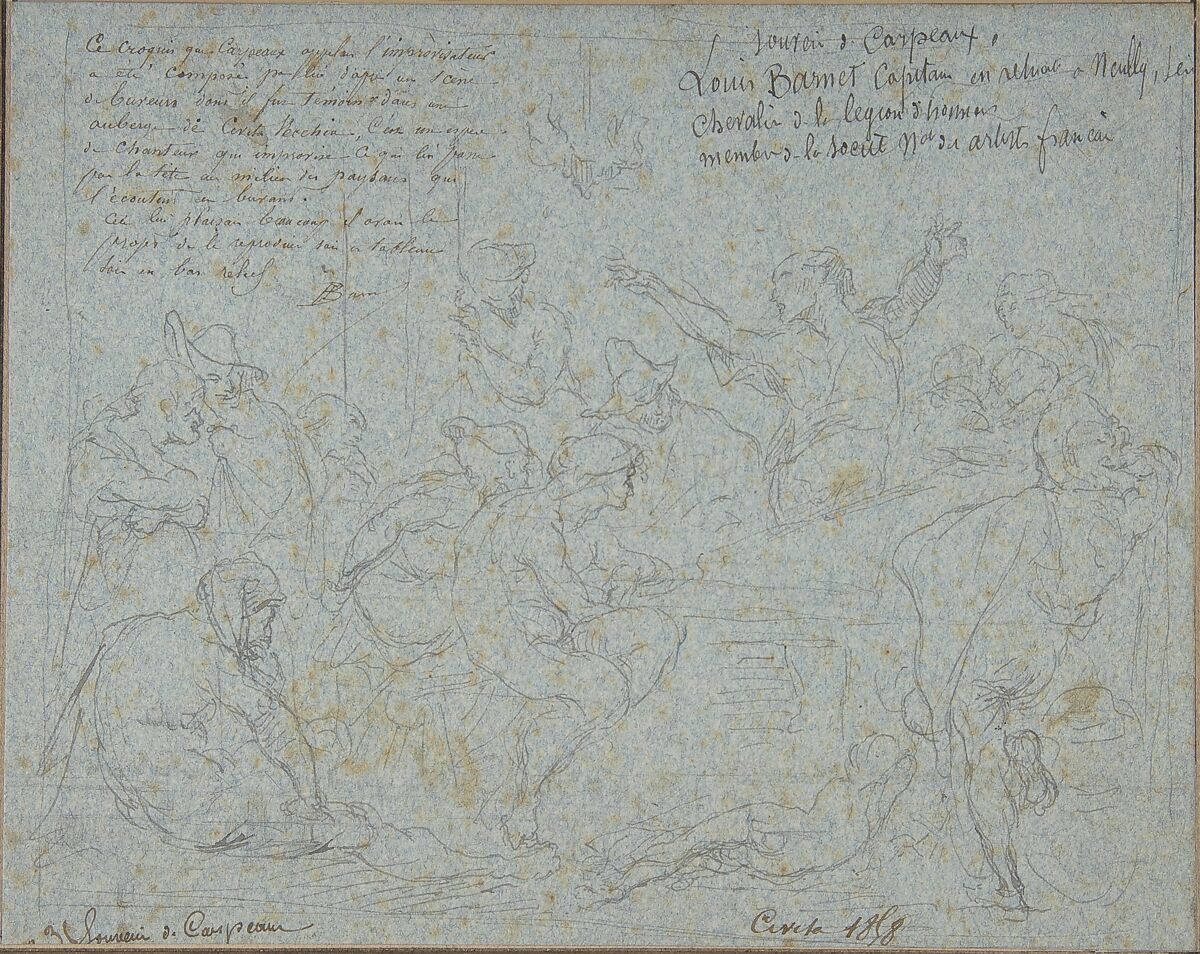 Ce croquis que Carpeaux appelait l'improvisateur
a été composé par lui d'après un scene
de buveurs dont il fut temoin dans un
auberge de Civita Vecchia, C'est un espece
de chanteur qui improvise ce qui lui passe
par la tête au milieu des paysans qui
l'écoutent en buvant.
Cela lui plaisait beaucoup il avait le
projet de le reproduire soit en tableau
soit en bas relief
Souvenir de Carpeaux.
Louis Barnet Capitaine en retraite a Neuilly,
Chevalier de la legion d'honneur
membre de la Société Nale des artistes français
Souvenir de Carpeaux
Civita 1858